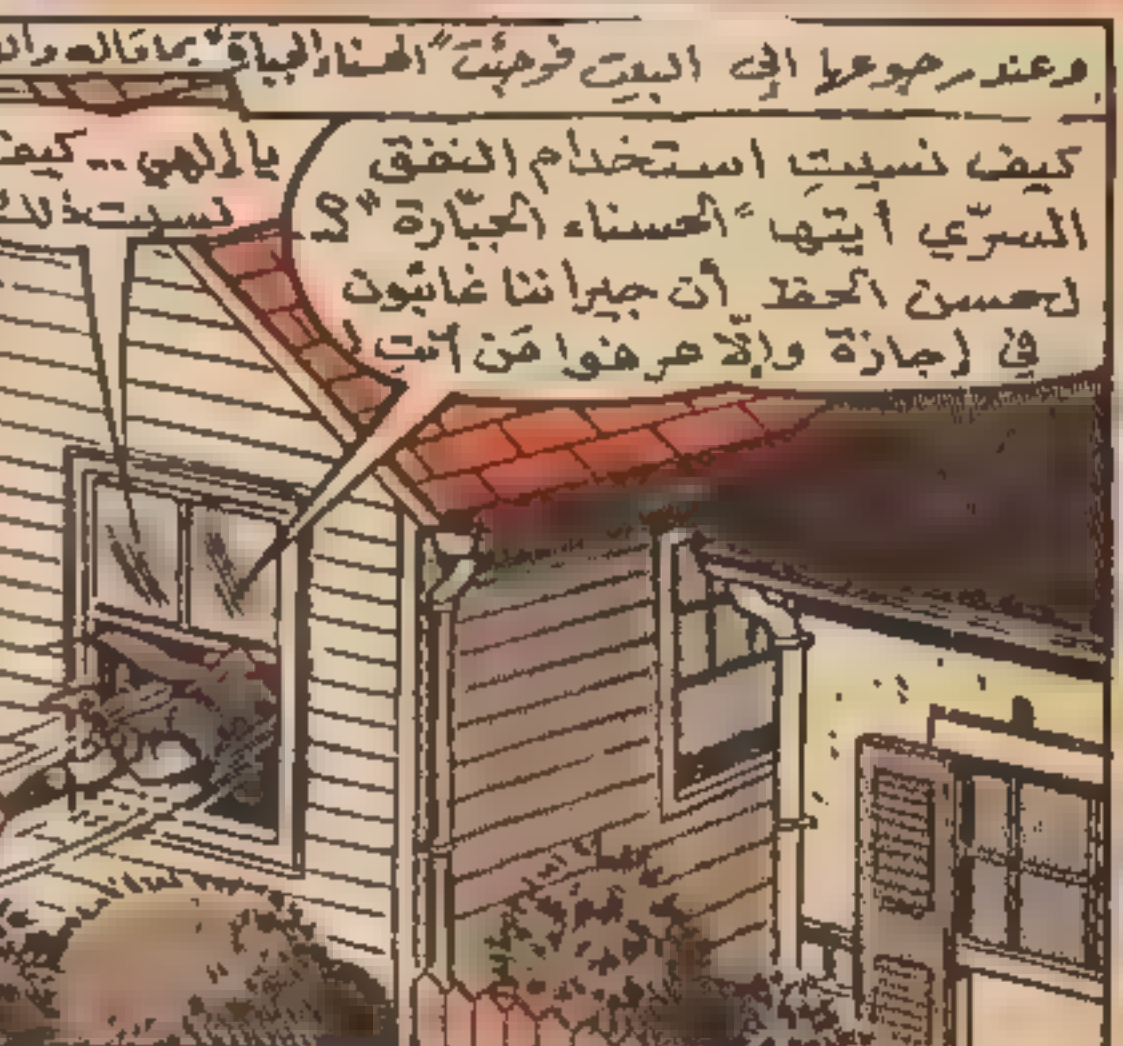 وعند رجوعها الى البيت فوجئت "الحسناء الجبارة" بما قاله والد
كيف نسيتِ استخدام النفق
السرّي أيتها "الحسناء الجبّارة"؟
لحسن الحظ أن جيراننا غائبون
في إجازة وإلّا عرفوا مَن أنتِ!
يا إلهي .. كيف
نسيت ذلك